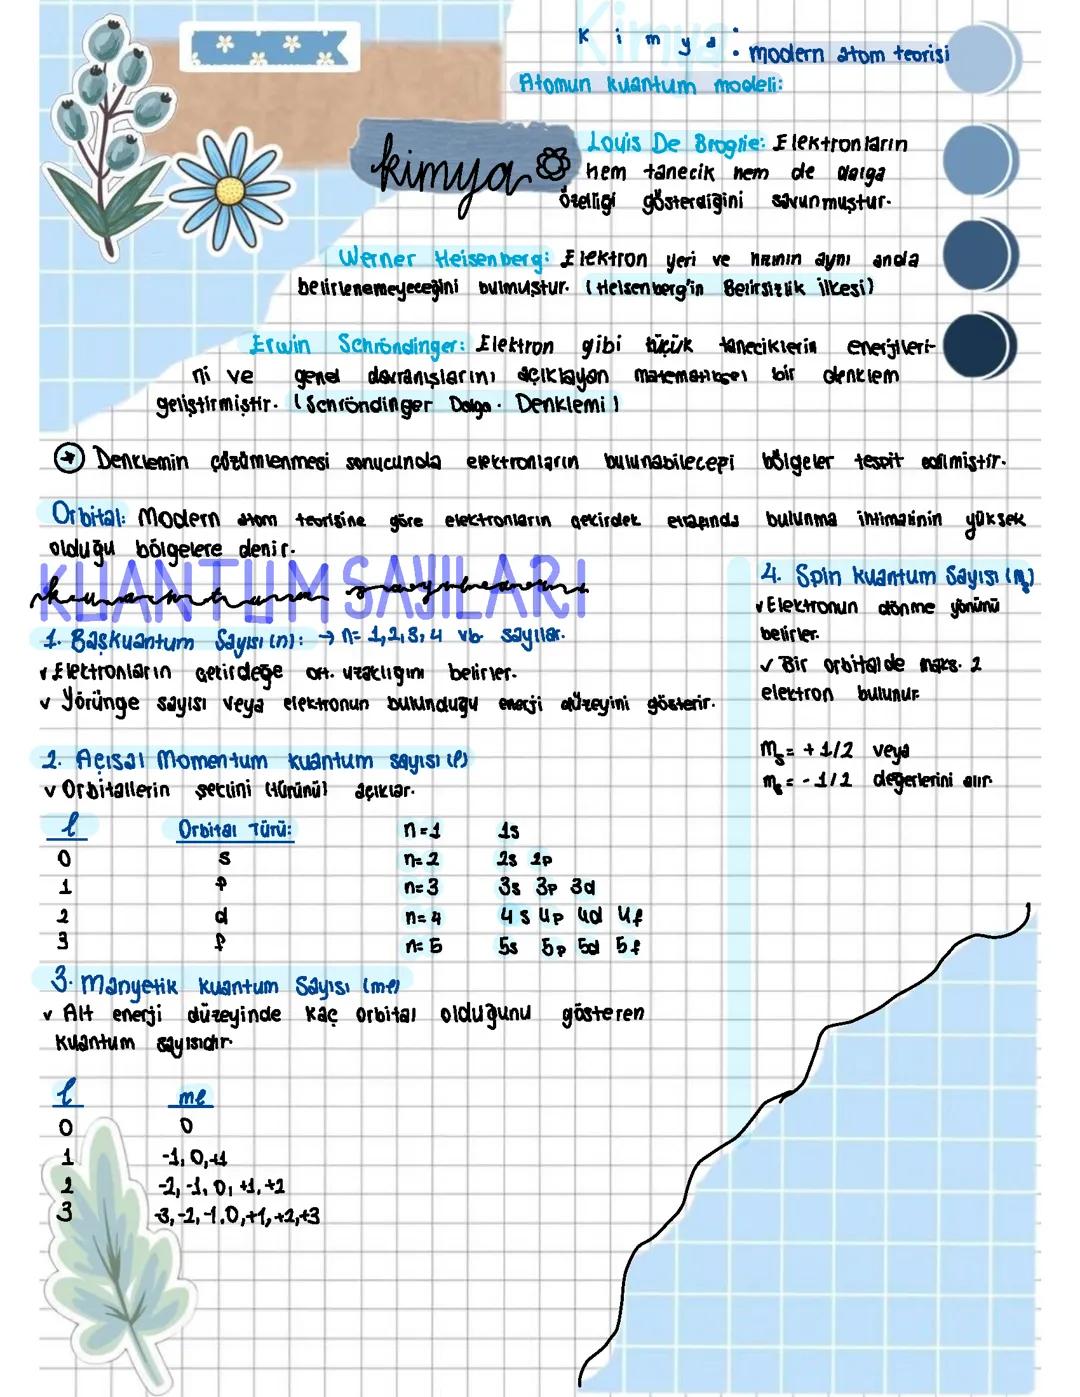 Kimya
Kimya: modern atom teorisi
Atomun kuantum modeli:
kimya
Louis De Broglie: Elektronların
hem tanecik hem de dalga
özelliği gösterdiğini savunmuştur.
Werner Heisenberg: Elektron yeri ve hızının aynı anda
belirlenemeyeceğini bulmuştur. (Heisenberg'in Belirsizlik ilkesi)
Erwin Schröndinger: Elektron gibi küçük taneciklerin enerjileri-
ni ve genel davranışlarını açıklayan matematiksel bir denklem
geliştirmiştir. (Schröndinger Dalga. Denklemi)
→ Denklemin çözümlenmesi sonucunda elektronların bulunabileceği bölgeler tespit edilmiştir.
Orbital: Modern atom teorisine göre elektronların çekirdek etrafında bulunma ihtimalinin yüksek
olduğu bölgelere denir.
KUANTUM SAYILARI
1. Başkuantum Sayısı (n): → n= 1,2,3,4 vb. sayılar.
v Elektronların çekirdeğe ort. uzaklığını belirler.
v Yörünge sayısı veya elektronun bulunduğu enerji düzeyini gösterir.
2. Açısal Momentum kuantum sayısı (l)
v Orbitallerin şeklini (türünü) açıklar.
l Orbital Türü:
0 s
1 p
2 d
3 f
n=1 1s
n=2 2s 2p
n=3 3s 3p 3d
n=4 4s 4p 4d 4f
n=5 5s 5p 5d 5f
3. Manyetik kuantum Sayısı (ml)
v Alt enerji düzeyinde kaç orbital olduğunu gösteren
kuantum sayısıdır.
l ml
0 0
1 -1, 0, +1
2 -2, -1, 0, +1, +2
3 -3, -2, -1, 0, +1, +2, +3
4. Spin kuantum Sayısı (ms)
v Elektronun dönme yönünü
belirler.
✓ Bir orbitalde maks. 2
elektron bulunur.
ms = +1/2 veya
ms = -1/2 değerlerini alır.